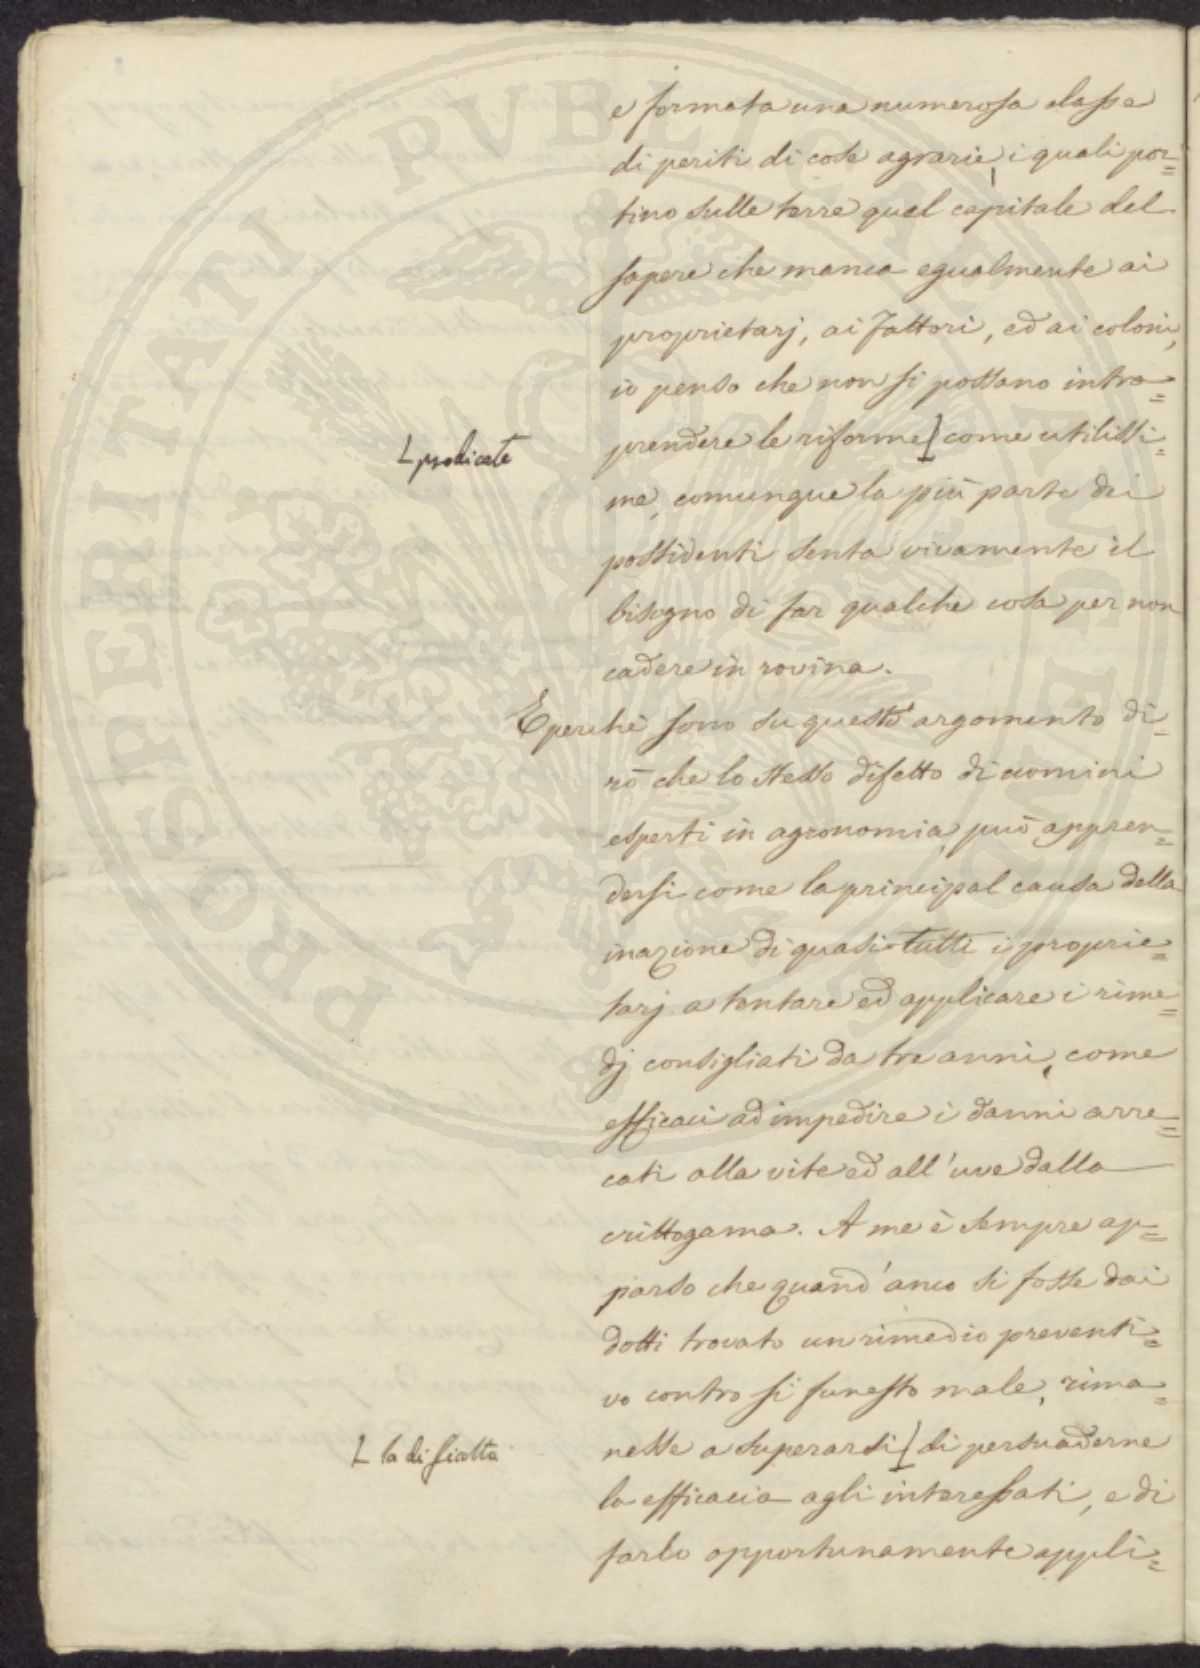 e formata una numerosa classe
di periti di cose agrarie, i quali por=
tino sulle terre quel capitale del
sapere che manca egualmente ai
proprietarj, ai Fattori, ed ai coloni,
io penso che non si possano intra=
prendere le riforme [ come utilissi=
L predicate
me, comunque la più parte dei
possidenti senta vivamente il
bisogno di far qualche cosa per non
cadere in rovina.
E perchè sono su questo argomento di=
rò che lo stesso difetto di uomini
esperti in agronomia, può appren=
dersi come la principal causa della
inazione di quasi tutti i proprie=
tarj a tentare ed applicare i rime=
dj consigliati da tre anni, come
efficaci ad impedire i danni arre=
cati alla vite ed all'uve dalla
crittogama. A me è sempre ap=
parso che quand'anco si fosse dai
dotti trovato un rimedio preventi=
vo contro sì funesto male, rima=
nesse a superarsi [ di persuaderne
L la dificoltà
la efficacia agli interessati, e di
farlo opportunamente appli=
PROSPERITATI PVBLICAE AVGENDAE